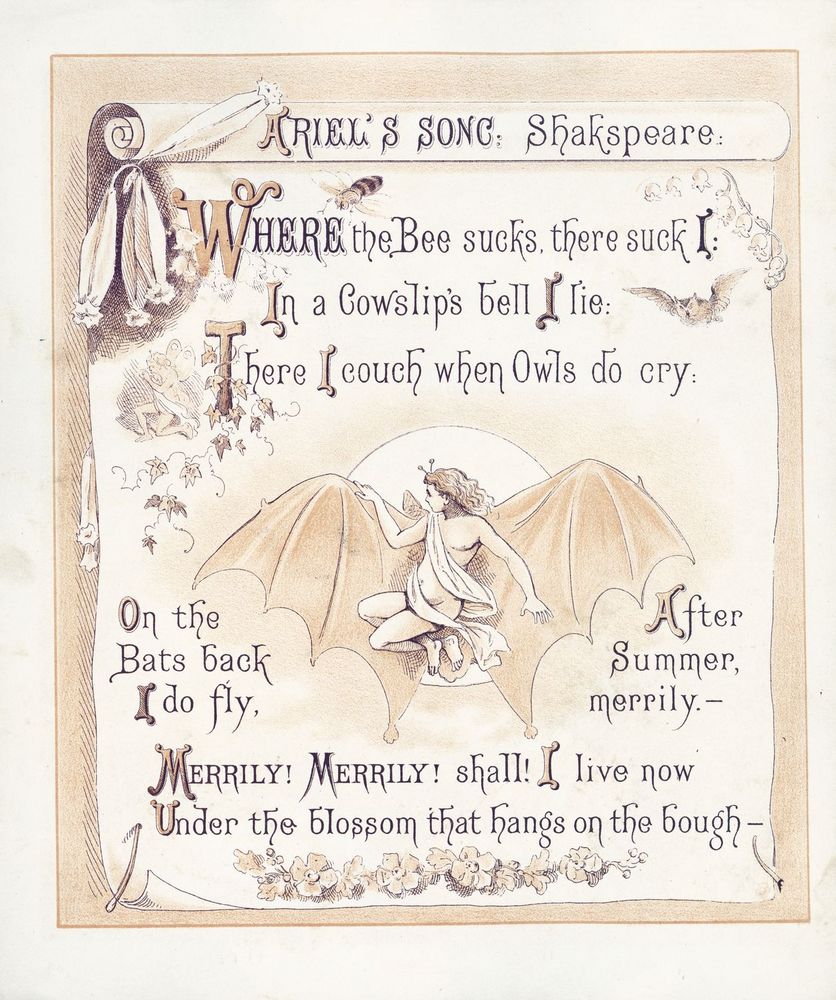 ARIEL'S SONG: Shakspeare:
WHERE the Bee sucks, there suck I:
In a Cowslip's bell I lie:
There I couch when Owls do cry:
On the
Bats back
I do fly,
After
Summer,
merrily.—
MERRILY! MERRILY! shall! I live now
Under the blossom that hangs on the bough—